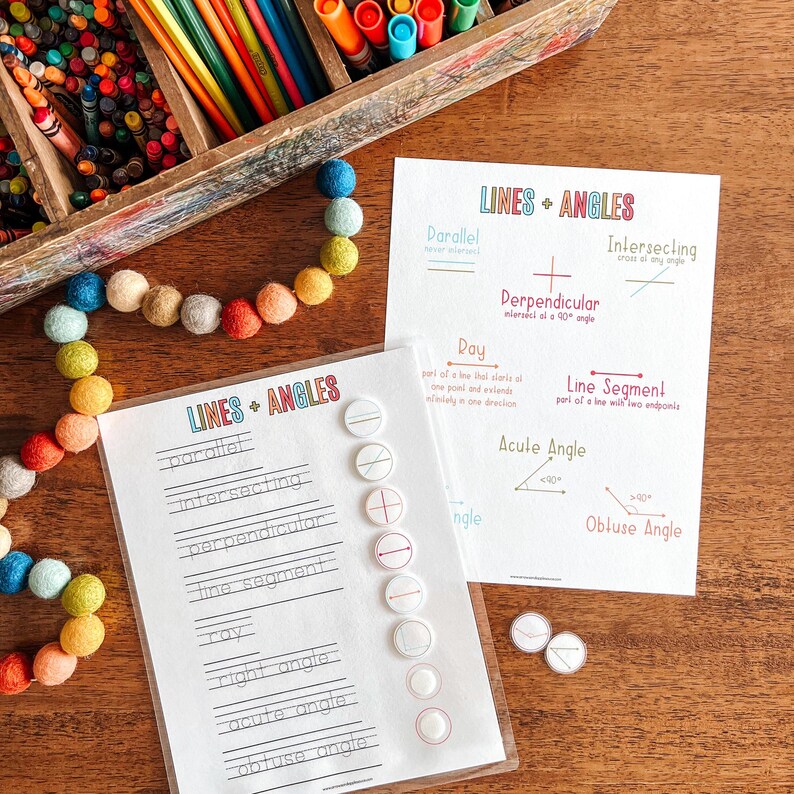 LINES + ANGLES
Parallel
never intersect
Intersecting
cross at any angle
Perpendicular
intersect at a 90° angle
Ray
part of a line that starts at
one point and extends
infinitely in one direction
Line Segment
part of a line with two endpoints
Acute Angle
<90°
Angle
>90°
Obtuse Angle
LINES + ANGLES
parallel
intersecting
perpendicular
line segment
ray
right angle
acute angle
obtuse angle